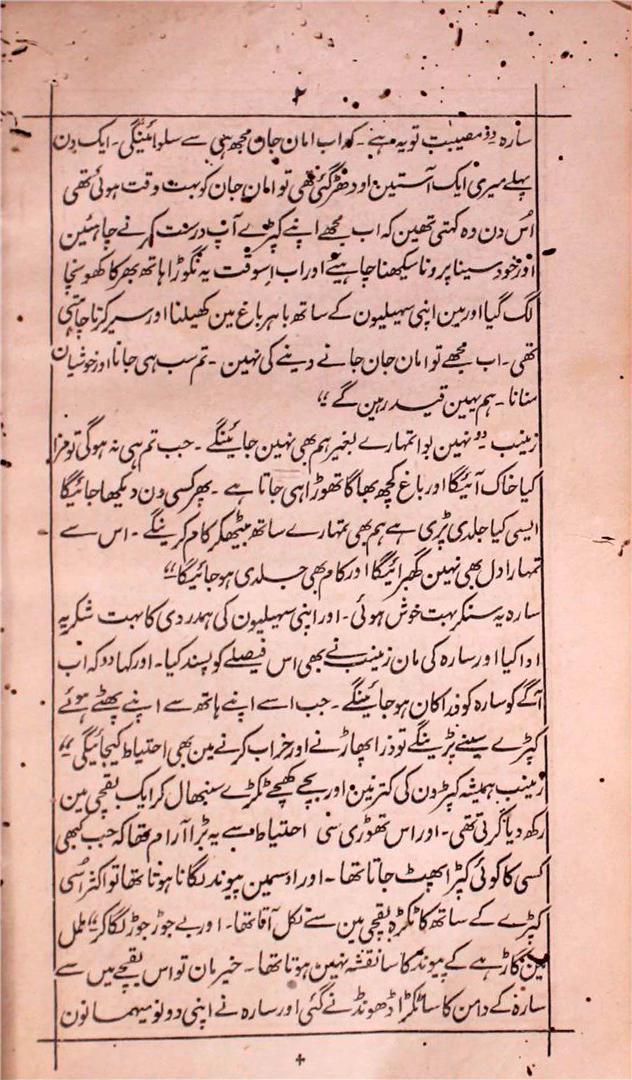 ۲
سارہ "مصیبت تو یہ ہے۔ کہ اب امان جان مجھ ہی سے سلوائینگی۔ ایک دن
پہلے میری ایک آستین اودھڑ گئی تھی تو امان جان کو بہت وقت ہوئی تھی
اُس دن وہ کہتی تھین کہ اب مجھے اپنے کپڑے آپ درست کرنے چاہئین
اور خود سینا پرونا سیکھنا چاہیے اور اب اسوقت یہ نگوڑا ہاتھ بھر کا کھونچا
لگ گیا اور مین اپنی سہیلیون کے ساتھ باہر باغ مین کھیلنا اور سیر کرنا چاہتی
تھی۔ اب مجھے تو امان جان جانے دینے کی نہین۔ تم سب ہی جانا اور خوشیان
منانا۔ ہم یہین قید رہین گے"
زینب "نہین بوا تمہارے بغیر ہم بھی نہین جائینگے۔ جب تم ہی نہ ہوگی تو مزا
کیا خاک آئیگا اور باغ کچھ بھاگا تھوڑا ہی جاتا ہے۔ پھر کسی دن دیکھا جائیگا
ایسی کیا جلدی پڑی ہے ہم بھی تمہارے ساتھ بیٹھکر کام کرینگے۔ اس سے
تمہارا دل بھی نہین گھبرائیگا اور کام بھی جلدی ہو جائیگا"
سارہ یہ سنکر بہت خوش ہوئی۔ اور اپنی سہیلیون کی ہمدردی کا بہت شکریہ
ادا کیا اور سارہ کی مان زینب نے بھی اس فیصلے کو پسند کیا۔ اور کہا "کہ اب
آگے کو سارہ کو ذرا کان ہو جائینگے۔ جب اسے اپنے ہاتھ سے اپنے پھٹے ہوئے
کپڑے سینے پڑینگے تو ذرا پھاڑنے اور خراب کرنے مین بھی احتیاط کیجائیگی"
زینب ہمیشہ کپڑون کی کترنین اور بچے کھچے ٹکڑے سنبھال کر ایک بقچی مین
رکھ دیا کرتی تھی۔ اور اس تھوڑی سی احتیاط سے یہ بڑا آرام تھا کہ جب کبھی
کسی کا کوئی کپڑا پھٹ جاتا تھا۔ اور اوسمین پیوند لگانا ہوتا تھا تو اکثر اُسی
کپڑے کے ساتھ کا ٹکڑہ بقچی مین سے نکل آتا تھا۔ اور بے جوڑ جوڑ لگا کر "ململ
مین گاڑہے کے پیوند کا سا نقشہ نہین ہوتا تھا۔ خیر مان تو اس بقچے میں سے
سارہ کے دامن کا سا ٹکڑا ڈھونڈنے گئی اور سارہ نے اپنی دونو میہمانون